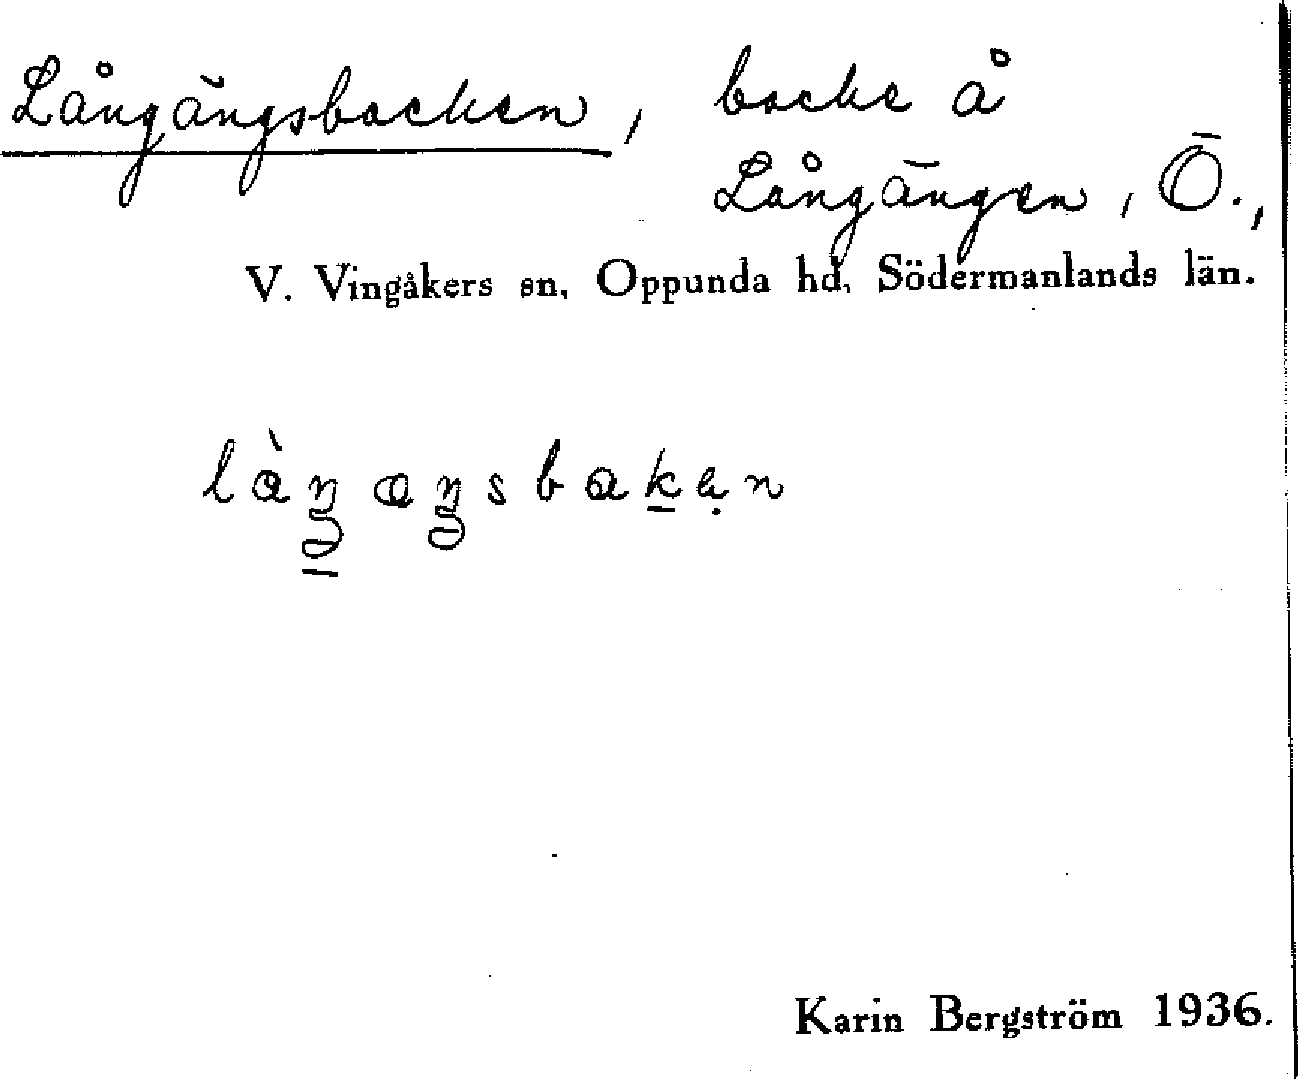 Långängsbacken, backe å
Långängen, Ö.,
V. Vingåkers sn, Oppunda hd, Södermanlands län.
Karin Bergström 1936.